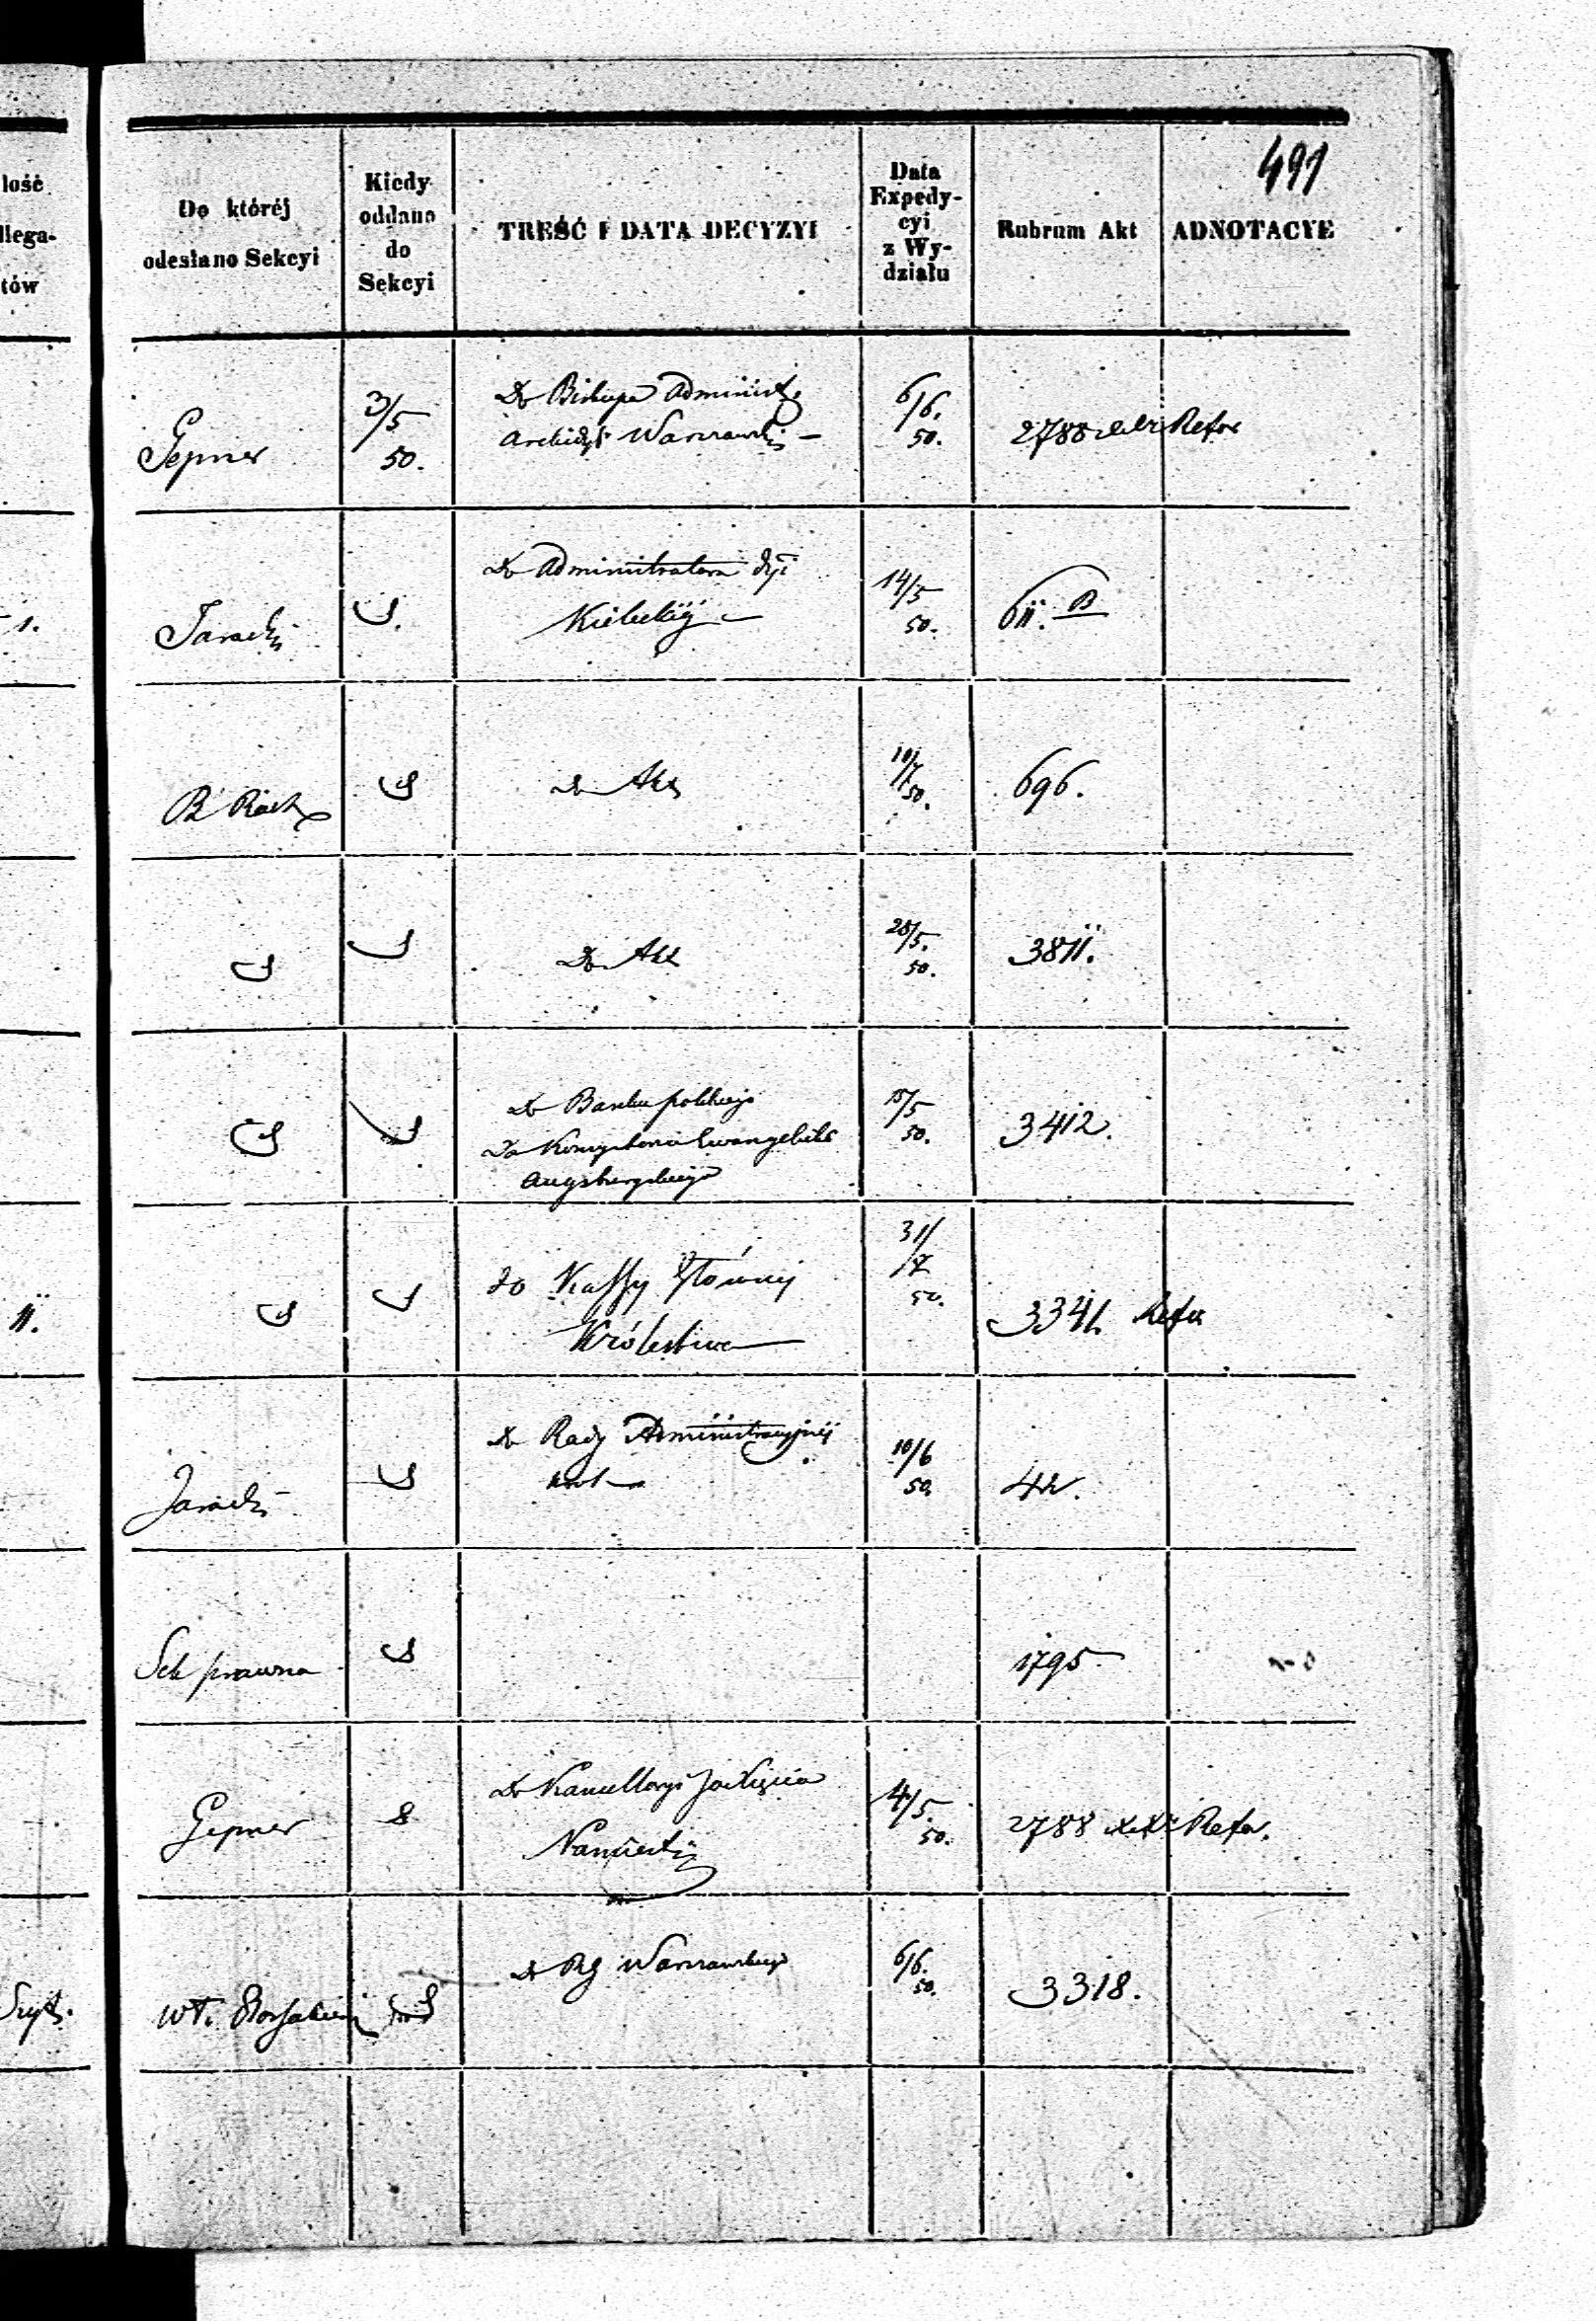 491
lość
llega-
tów
Do któréj
odesłano Sekcyi
Kiedy
oddano
do
Sekcyi
TREŚĆ I DATA DECYZYI
Data
Expedy-
cyi
z Wy-
działu
Rubrum Akt
ADNOTACYE
Gepner
3/5
50.
Do Biskupa Administr
Archidyi Warszawskij
6/6.
50.
2788 Refer
1.
Do Administratora Dyi
Kieleckiéj
14/5
50.
6ii. B
do Akt
10/7
50.
696.
Do Akt
28/5.
50.
3811.
Do Banku polskiego
Do Konsystorza Ewangelicko
Augsburgskiego
15/5
50.
3412.
11.
do Kassy Głównej
Królestwa
31/
7
50.
Refer
Do Rady Administracyjnéj
10/6
50.
42.
Sek prawna
1795
Gepner
Do Kancellaryi JO Xięcia
Namiestn
14/5.
50.
2788 Refer.
Do RG Warszawskiego
6/6.
50.
3318.
Wł.